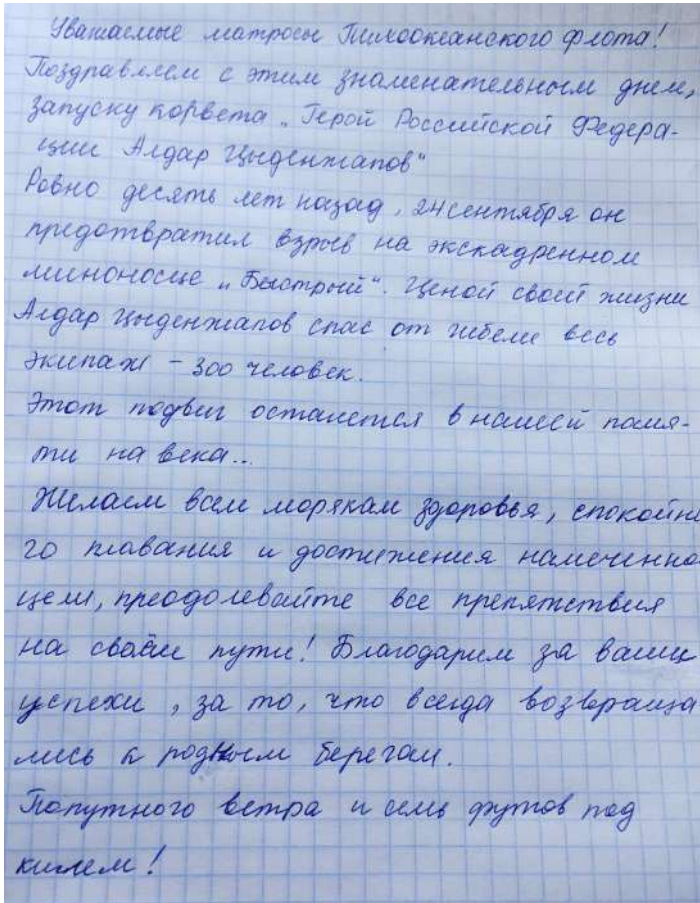 Уважаемые матросы Тихоокеанского флота!
Поздравляем с этим знаменательным днем,
запуску корвета „Герой Российской Федера-
ции Алдар Цыденжапов"
Ровно десять лет назад, 24 сентября он
предотвратил взрыв на экскадренном
миноносце „Быстрый". Ценой своей жизни
Алдар Цыденжапов спас от гибели весь
экипаж – 300 человек.
Этот подвиг останется в нашей памя-
ти на века...
Желаем всем морякам здоровья, спокойн
го плавания и достижения намеченно
цели, преодолевайте все препятствия
на своем пути! Благодарим за ваши
успехи, за то, что всегда возвраща
лись к родным берегам.
Попутного ветра и семь футов под
килем!